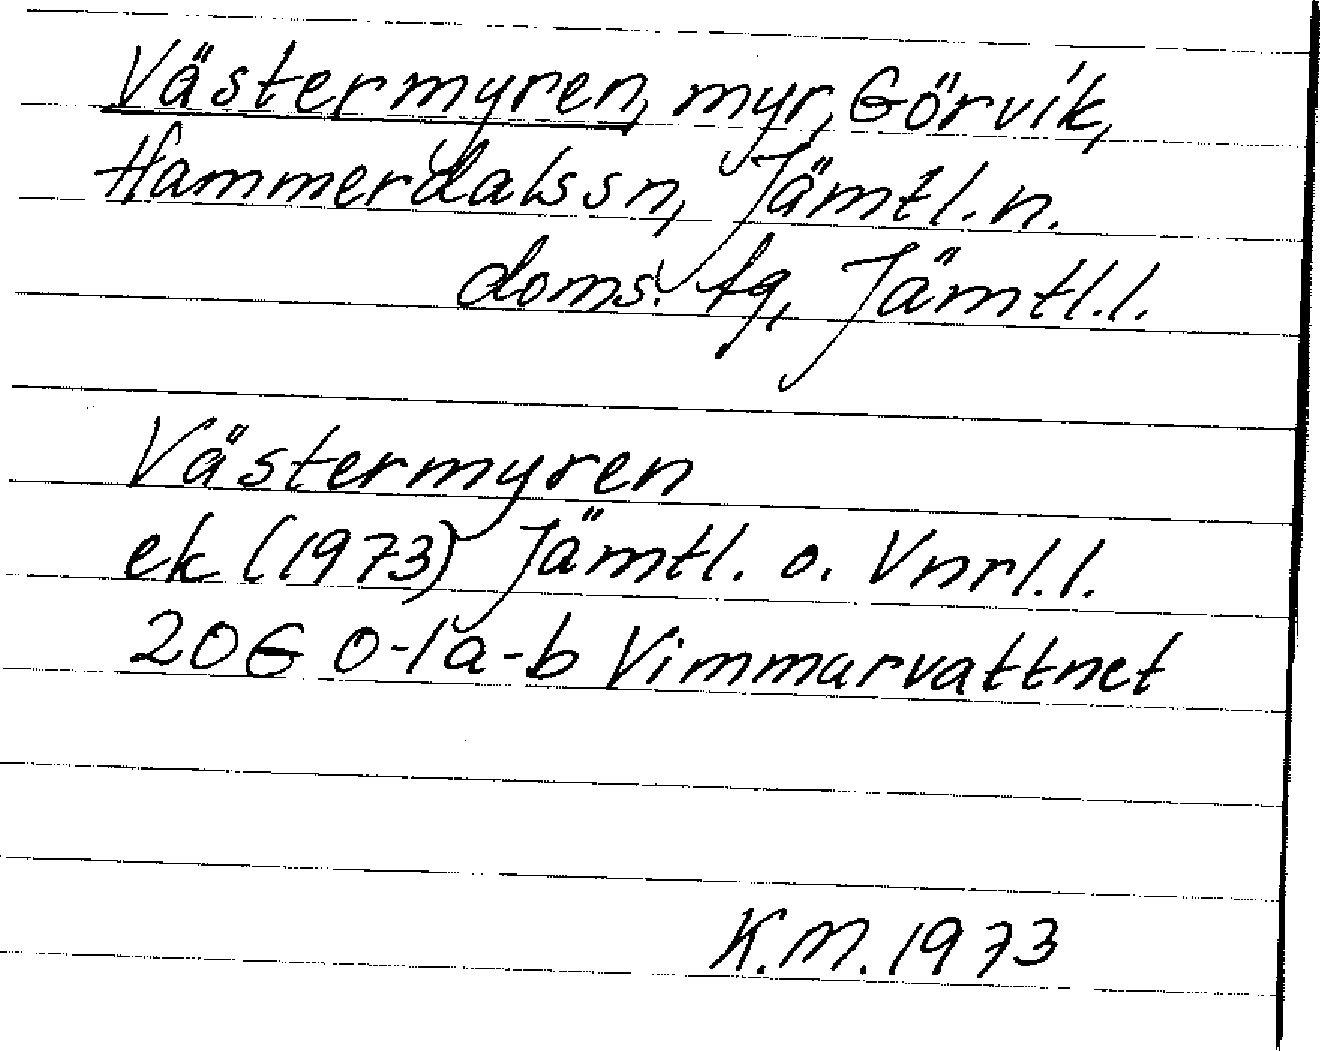 Västermyren, myr, Görvik,
Hammerdals sn, Jämtl. n.
doms. fg, Jämtl. l.
Västermyren
ek (1973) Jämtl. o. Vnrl. l.
20G 0-1a-b Vimmarvattnet
K.M. 1973